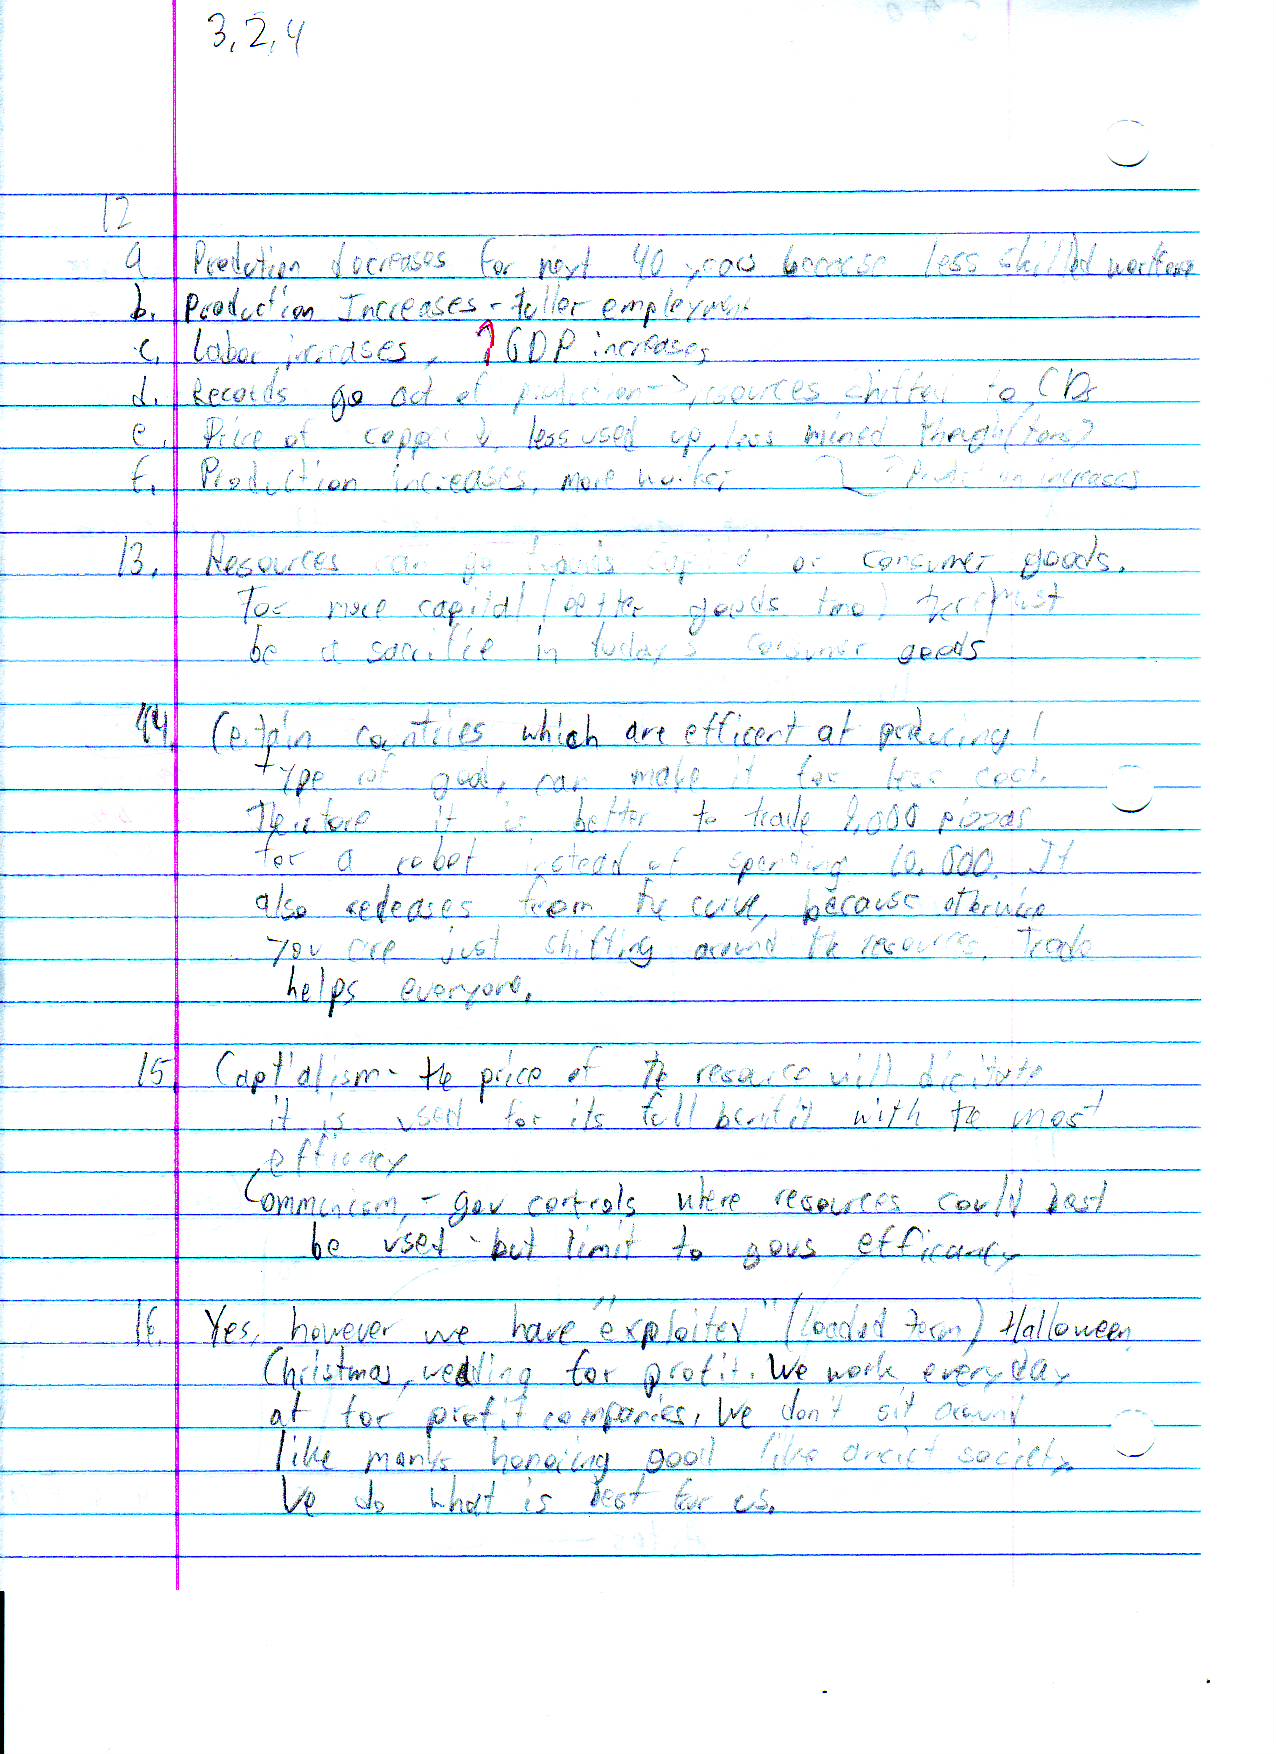 3, 2, 4
12
a Prodution decreases for next 40 years because less skilled workforce
b. Production Increases - fuller employment
c. Labor increases, ↑ GDP increases
d. Records go out of production -> resources shifted to CDs
e. Price of copper ↓, less used up, less mined though (tons)
f. Production increases, more worker ? Production increases
13. Resources can go towards capital or consumer goods.
For more capital (better goods tmo) there must
be a sacrifice in today's consumer goods
14. Certain countries which are efficent at producing 1
type of good, can make it for less cost.
Therefore it is better to trade 8,000 pizzas
for a robot instead of spending 10,000. It
also from the curve, because otherwise
you are just shifting around the resources. Trade
helps everyone.
15. Captialism - the price of the resource will dicitate
it is used for its full benifit with the most
efficney
Communism, - gov controls where resources could best
be used - but limit to govs efficancy
16. Yes, however we have "exploited" (loaded term) Halloween,
Christmas, wedding for profit. We work everyday
at for profit companies. We don't sit around
like monks honoring good like ancient society.
We do what is best for us.